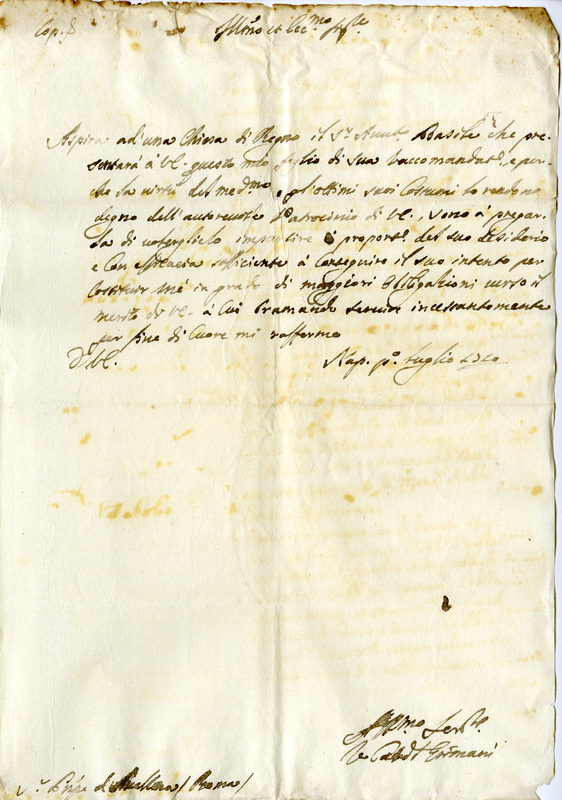 Cop. 8
Ill.mo et Ecc.mo Sig.re
Aspira ad'una Chiesa di Regno il S.r Basile che pre-
sentarà à VE. questo mio foglio di sua raccomandat.e, e per-
che la virtù del med.mo, e gl'ottimi suoi Costumi lo rendono
degno dell'autoreuole Patrocinio di VE., sono à pregar-
la di uoterglielo impartire à proport.e del suo desiderio
e Con efficacia sufficiente à Conseguire il suo intento per
Costituir mè in grado di maggiori Obligationi uerso il
merito di VE. à Cui bramando seruire incessantemente
per fine di Cuore mi raffermo
D VE.
Nap. p.o luglio 1710
Aff.mo Ser.re
Il Card.l Grimani
S.r Prìpe d'Avellino / Roma /